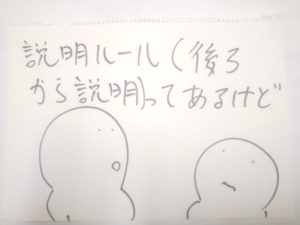 説明ルール(後ろ
から説明)ってあるけど